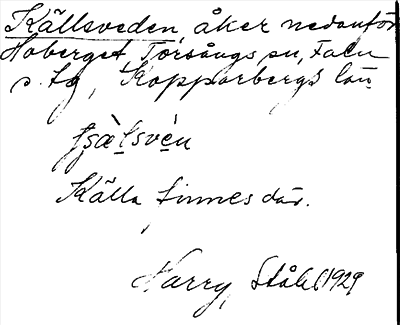 Källsveden, åker nedanför
Hoberget, Torsångs sn, Falu
s. tg, Kopparbergs län
Källa finnes där.
Harry Ståhl 1929